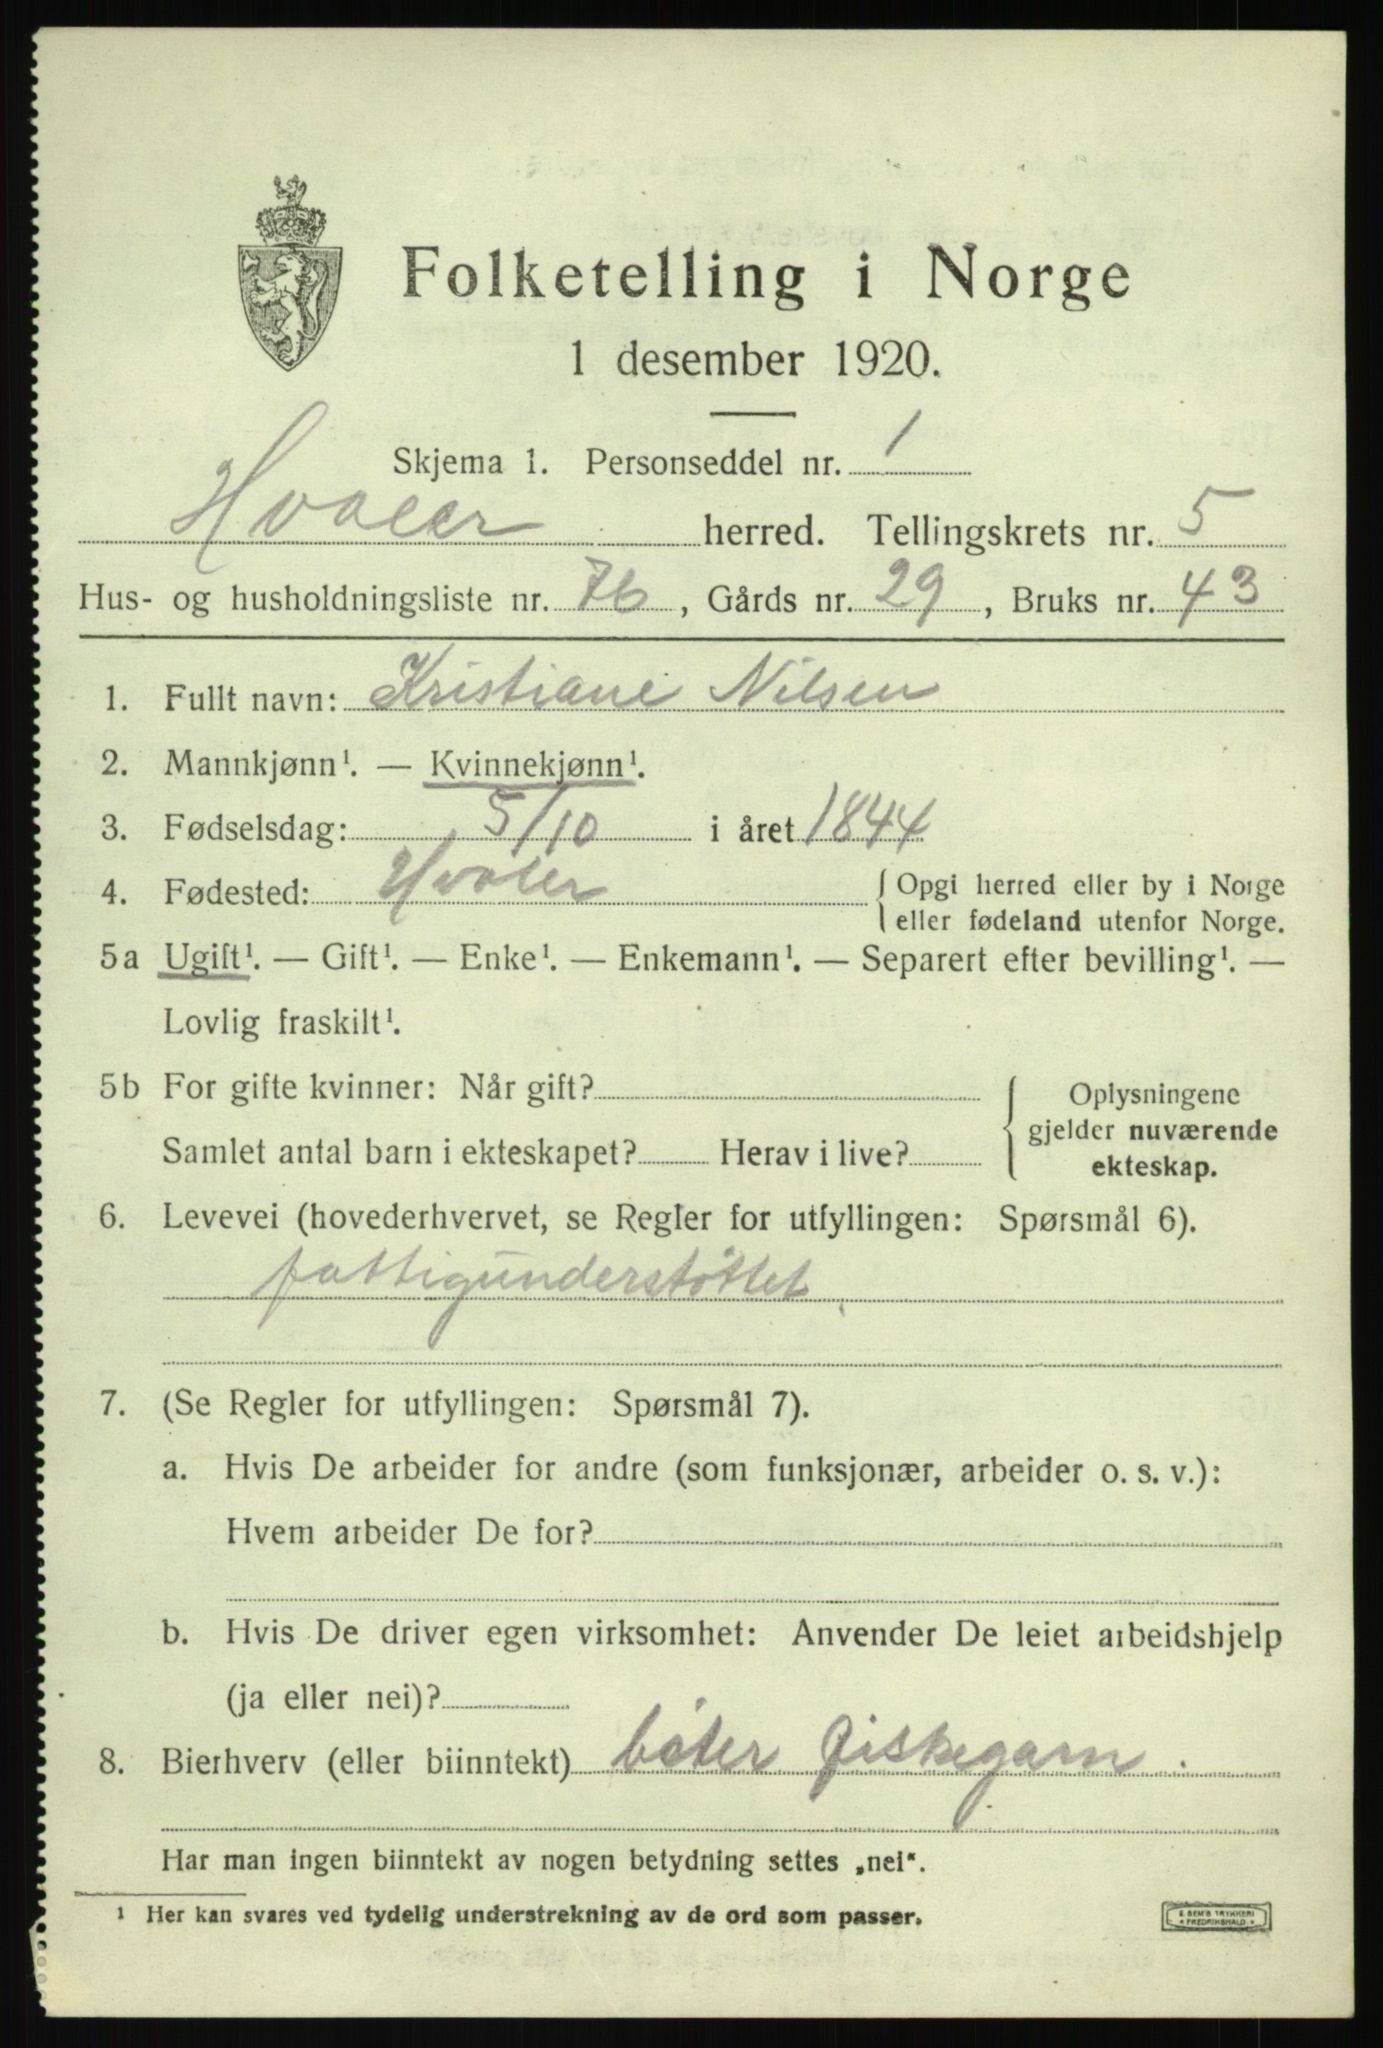 Folketelling i Norge
1 desember 1920.
Skjema 1. Personseddel nr. 1
Hvaler herred. Tellingskrets nr. 5
Hus- og husholdningsliste nr. 76, Gårds nr. 29, Bruks nr. 43
1. Fullt navn: Kristiane Nilsen
2. Mannkjønn¹. — Kvinnekjønn¹.
3. Fødselsdag: 5/10 i året 1844
4. Fødested: Hvaler { Opgi herred eller by i Norge
eller fødeland utenfor Norge.
5a Ugift¹. — Gift¹. — Enke¹. — Enkemann¹. — Separert efter bevilling¹. —
Lovlig fraskilt¹.
5b For gifte kvinner: Når gift? { Oplysningene
gjelder nuværende
Samlet antal barn i ekteskapet? Herav i live?
ekteskap.
6. Levevei (hovederhvervet, se Regler for utfyllingen: Spørsmål 6).
fattigunderstöttet
7. (Se Regler for utfyllingen: Spørsmål 7).
a. Hvis De arbeider for andre (som funksjonær, arbeider o. s. v.):
Hvem arbeider De for?
b. Hvis De driver egen virksomhet: Anvender De leiet arbeidshjelp
(ja eller nei)?
8. Bierhverv (eller biinntekt) böter fiskegarn.
Har man ingen biinntekt av nogen betydning settes „nei".
¹ Her kan svares ved tydelig understrekning av de ord som passer.
E. SEM'S TRYKKERI
• FREDRIKSHALD •